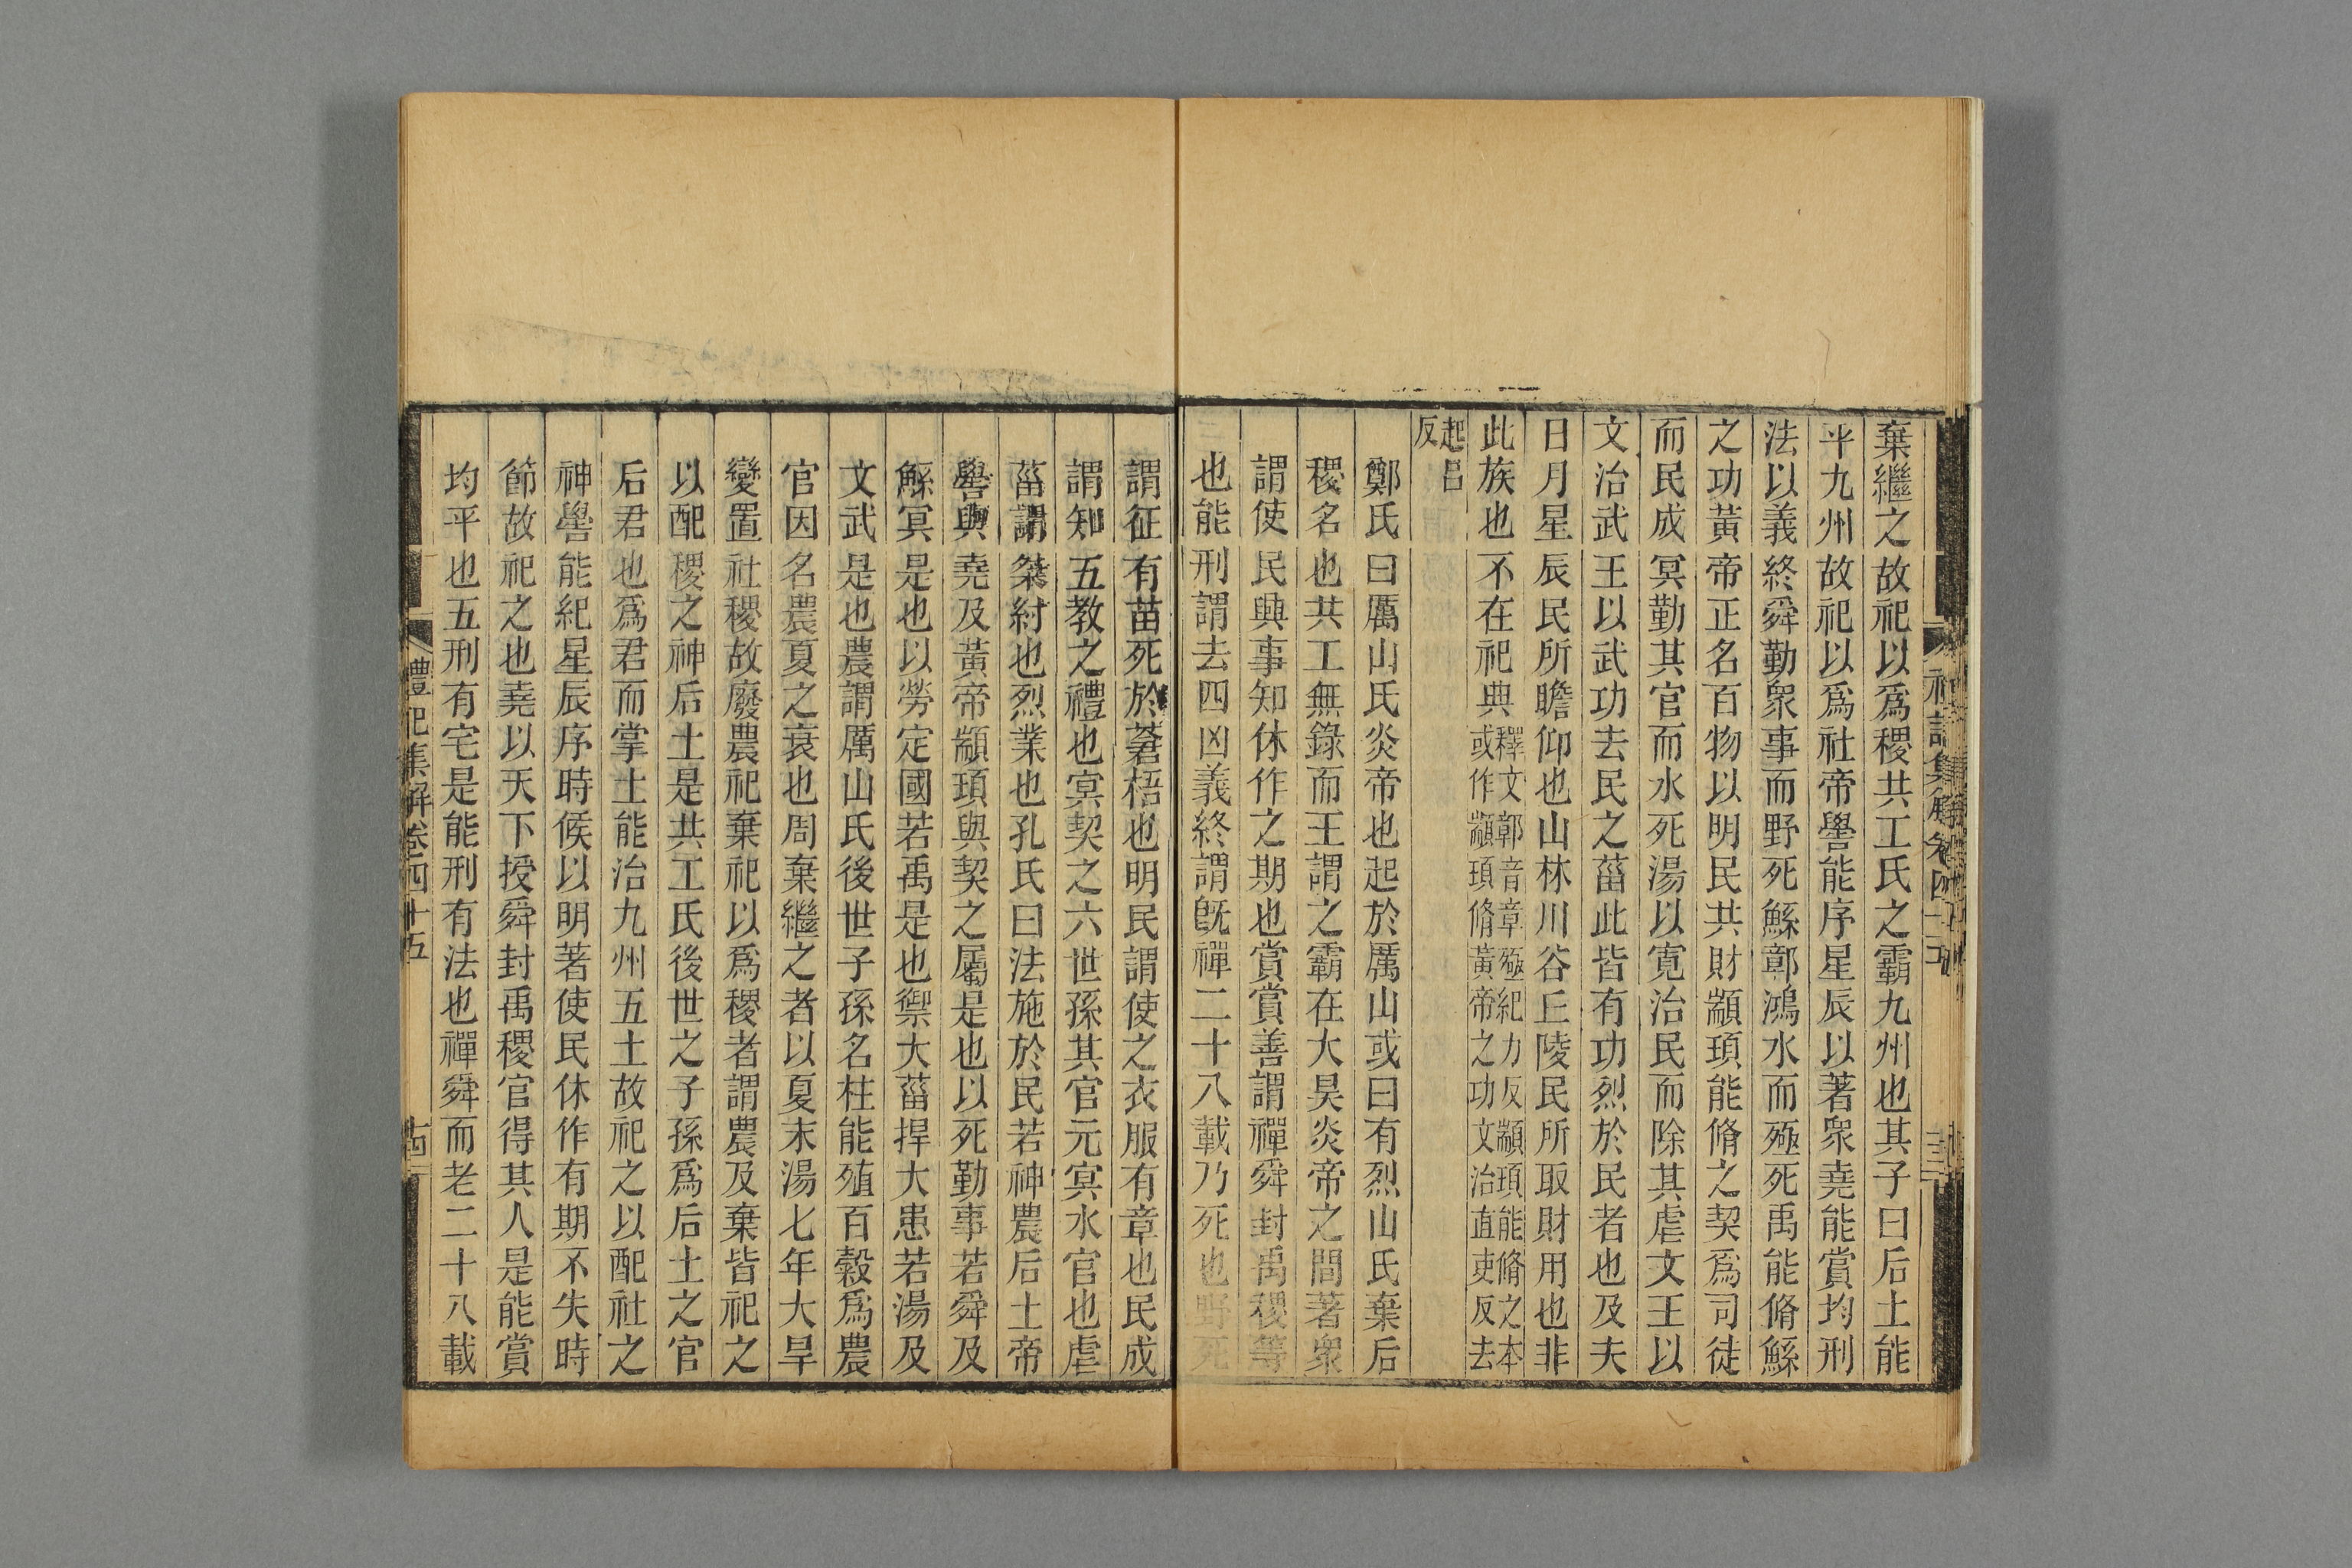 棄繼之故祀以爲稷共工氏之霸九州也其子曰后土能
平九州故祀以爲社帝嚳能序星辰以著衆堯能賞均刑
法以義終舜勤衆事而野死鯀鄣鴻水而殛死禹能脩鯀
之功黃帝正名百物以明民共財顓頊能脩之契爲司徒
而民成冥勤其官而水死湯以寬治民而除其虐文王以
文治武王以武功去民之菑此皆有功烈於民者也及夫
日月星辰民所瞻仰也山林川谷丘陵民所取財用也非
此族也不在祀典
釋文鄣音章殛紀力反顓頊能脩之本
或作顓頊脩黃帝之功文治直吏反去
起呂
反
鄭氏曰厲山氏炎帝也起於厲山或曰有烈山氏棄后
稷名也共工無錄而王謂之霸在大昊炎帝之間著衆
謂使民興事知休作之期也賞賞善謂禪舜封禹稷等
也能刑謂去四凶義終謂旣禪二十八載乃死也野死
謂征有苗死於蒼梧也明民謂使之衣服有章也民成
謂知五教之禮也冥契之六世孫其官元冥水官也虐
菑謂桀紂也烈業也孔氏曰法施於民若神農后土帝
嚳與堯及黃帝顓頊與契之屬是也以死勤事若舜及
鯀冥是也以勞定國若禹是也禦大菑捍大患若湯及
文武是也農謂厲山氏後世子孫名柱能殖百穀爲農
官因名農夏之衰也周棄繼之者以夏末湯七年大旱
變置社稷故廢農祀棄祀以爲稷者謂農及棄皆祀之
以配稷之神后土是共工氏後世之子孫爲后土之官
后君也爲君而掌土能治九州五土故祀之以配社之
神嚳能紀星辰序時候以明著使民休作有期不失時
節故祀之也堯以天下授舜封禹稷官得其人是能賞
均平也五刑有宅是能刑有法也禪舜而老二十八載
禮記集解卷四十五
十四